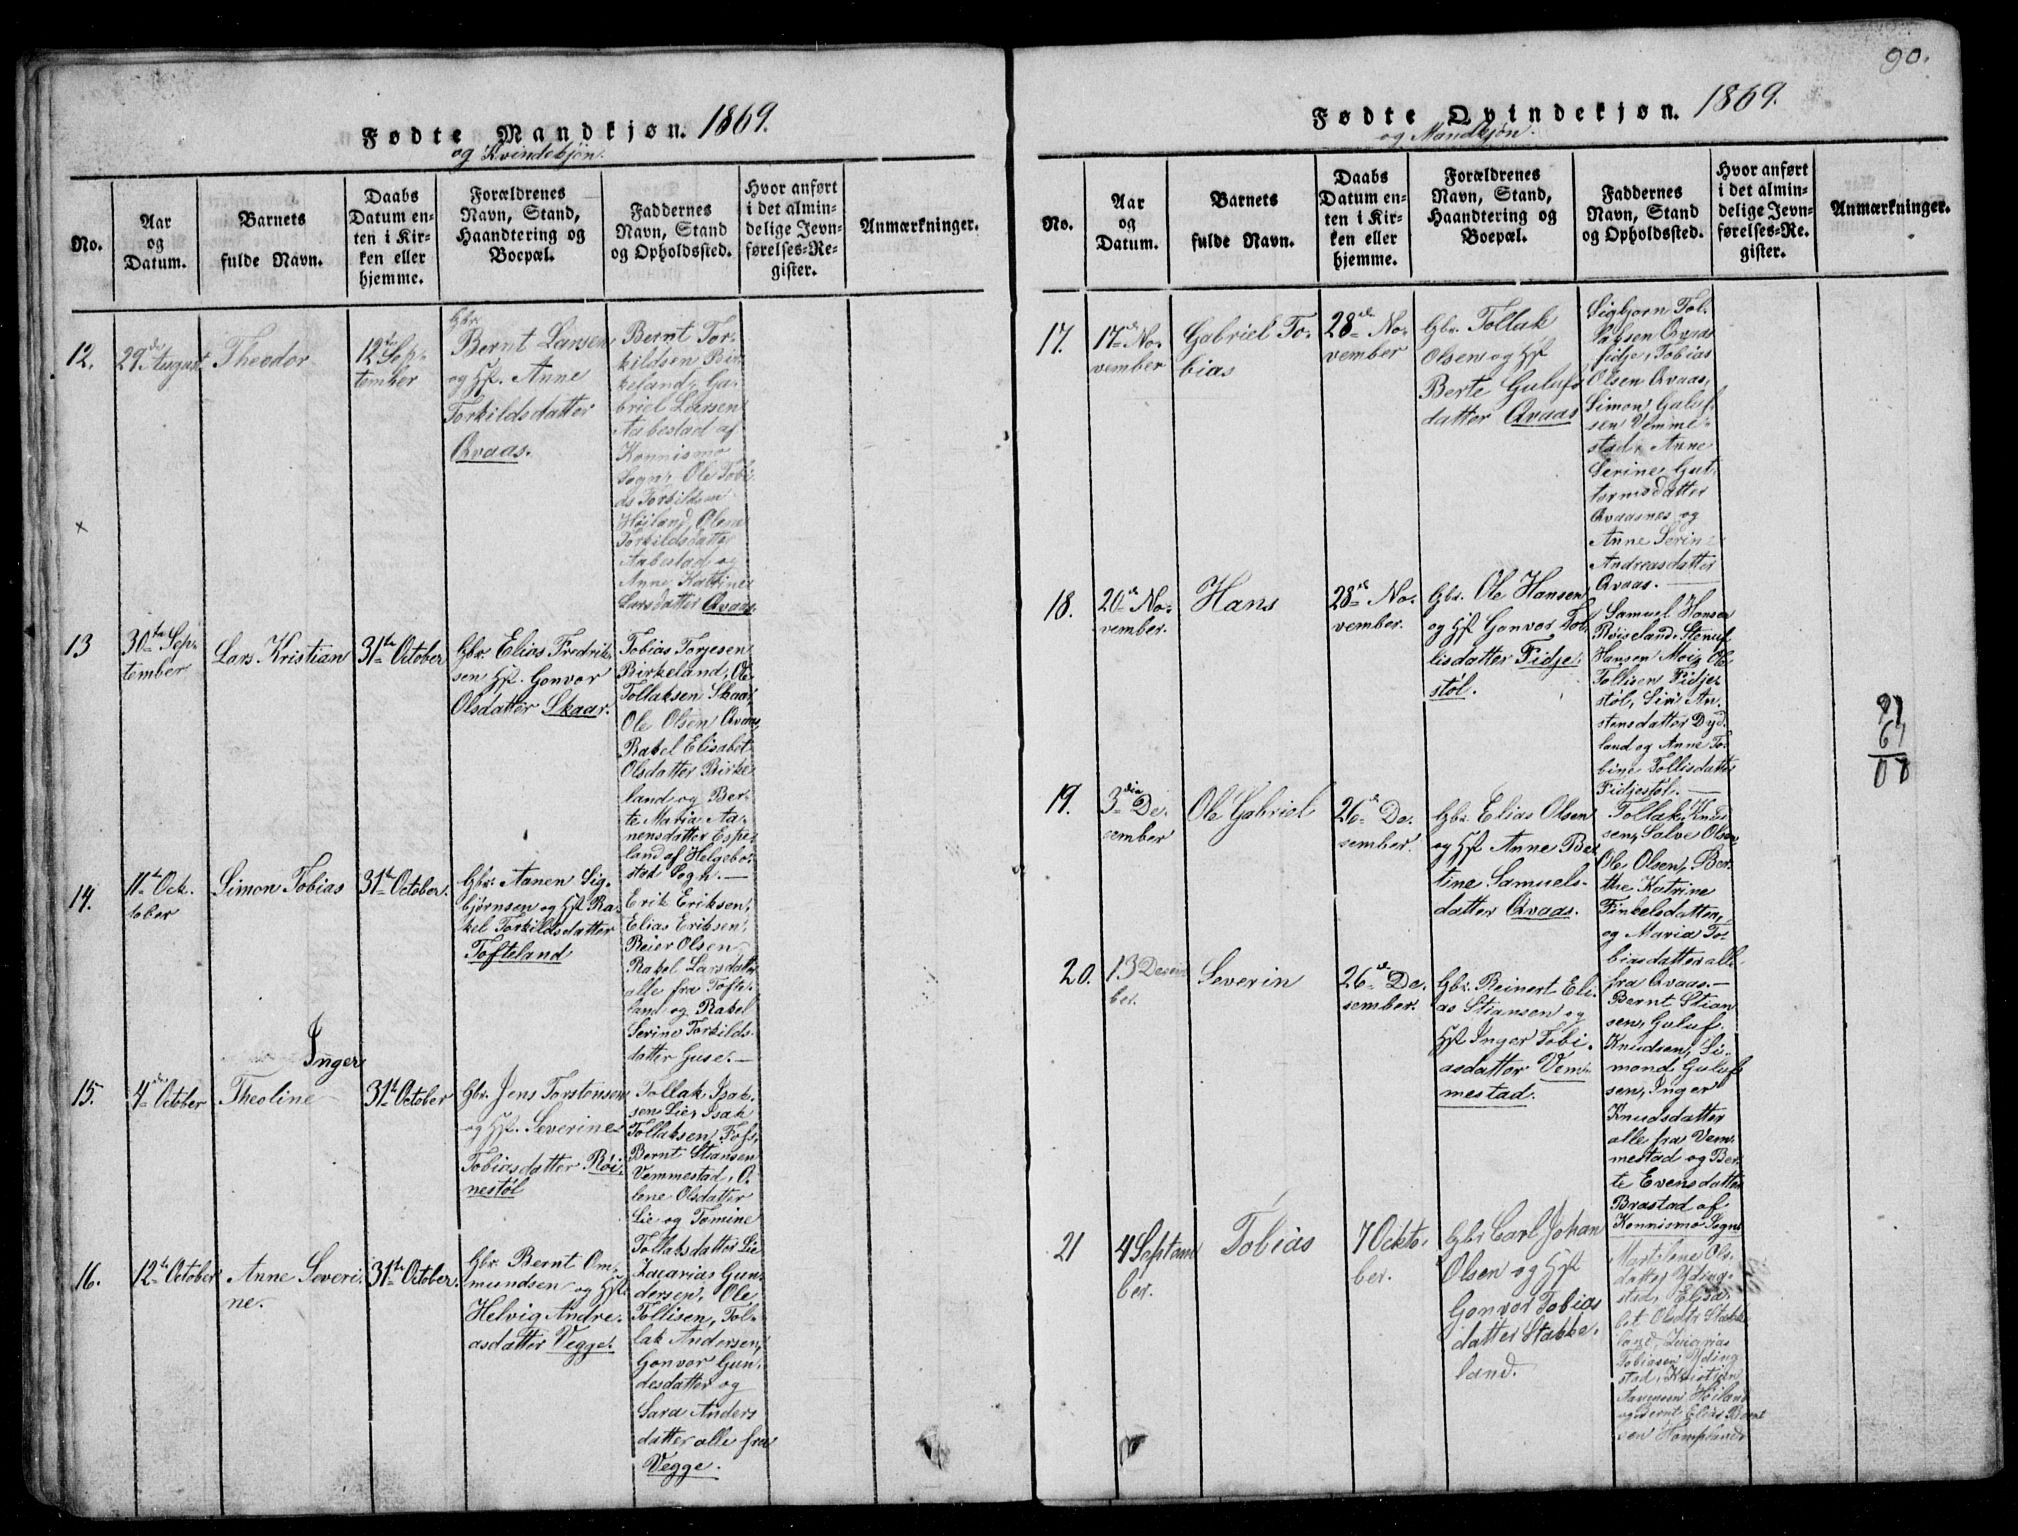 Fødte Mandkjøn. 1869.
og Kvindekjøn.
No.
Aar
og
Datum.
Barnets
fulde Navn.
Daabs
Datum en-
ten i Kir-
ken eller
hjemme.
Forældrenes
Navn, Stand,
Haandtering og
Boepæl.
Faddernes
Navn, Stand
og Opholdssted.
Hvor anført
i det almin-
delige Jevn-
førelses-Re-
gister.
Anmærkninger.
12.
29de August
Theodor
12te Sep-
tember
Gbr.
Bernt Larsen
og Hst. Anne
Torkildsdatter
Qvaas.
Bernt Tor-
kildsen Bir-
keland, Ga-
briel Larsen
Aabestad af
Konnismo
Sogn, Ole Tobi-
as Torkildsen
Høiland, Olene
Torkildsdatter
Aabestad og
Anne Kathrine
Larsdatter Qvaas.
13
30te Sep-
tember
Lars Kristian
31te October
Gbr. Elias Fredrik-
sen Hst. Gonvor
Olsdatter Skaar.
Tobias Torjesen
Birkeland, Ole
Tollaksen Skaar,
Ole Olsen Qvaas,
Rakel Elisabet
Olsdatter Birke-
land og Ber-
te Maria Aa-
nensdatter Espe-
land af Helgebo-
stad Sogn.
14.
11te Oc-
tober
Simon Tobias
31te October.
Gbr. Aanen Sig-
bjørnsen og Hst. Ra-
kel Torkildsdatter
Tofteland
Erik Eriksen,
Elias Eriksen,
Reier Olsen
Rakel Larsdatter
alle fra Tofte-
land og Rakel
Serine Torkilds-
datter Guse.
15.
4de October
Inger
Theoline
31te October
Gbr. Jens Torstensen
og Hst. Severine
Tobiasdatter Røi-
nestøl
Tollak Isak-
sen Lie, Isak
Tollaksen Foss,
Bernt Stiansen
Vemmestad, O-
lene Olsdatter
Lie og Tomine
Tollaksdatter Lie
16.
12te October
Anne Severi-
ne.
31te October.
Gbr. Bernt Om-
mundsen og Hst.
Helvig Andre-
asdatter Vegge.
Zacarias Gun-
dersen, Ole
Tollisen, Tol-
lak Andersen,
Gonvor Gun-
desdatter og
Sara Anders
datter alle fra
Vegge.
90.
Fødte Qvindekjøn. 1869.
og Mandkjøn.
No.
Aar
og
Datum.
Barnets
fulde Navn.
Daabs
Datum en-
ten i Kir-
ken eller
hjemme.
Forældrenes
Navn, Stand,
Haandtering og
Boepæl.
Faddernes
Navn, Stand
og Opholdssted.
Hvor anført
i det almin-
delige Jevn-
førelses-Re-
gister.
Anmærkninger.
17.
17de No-
vember
Gabriel To-
bias
28de No-
vember
Gbr. Tollak
Olsen og Hst
Berte Gulufs
datter Qvaas
Sigbjørn Tol-
laksen Qvaas
fidje, Tobias
Olsen Qvaas,
Simon Guluf-
sen Vemme-
stad, Anne
Serine Gut-
tormsdatter
Qvaasnes og
Anne Serine
Andreasdatter
Qvaas.
18.
20de No-
vember.
Hans
28de No-
vember.
Gbr. Ole Hansen
og Hst Gonvor Tol-
lisdatter Fidje-
støl.
Samuel Hansen
Røiseland, Stenuf
Hansen Moi, Ole
Tollisen Fidje-
støl, Siri An-
stensdatter Dyd-
land og Anne To-
bine Tollisdatter
Fidjestøl.
19.
3die De-
sember
Ole Gabriel
26de De-
sember.
Gbr. Elias Olsen
og Hst Anne Ber-
tine Samuels-
datter Qvaas.
Tollak Knud-
sen, Salve Olsen
Ole Olsen, Ber-
the Katrine
Finkelsdatter,
og Maria To-
biasdatter alle
fra Qvaas.
20.
13 Desem
ber.
Severin
26de De-
sember.
Gbr. Reinert Eli-
as Stiansen og
Hst Inger Tobi-
asdatter Vem-
mestad.
Bernt Stian
sen, Guluf
Knudsen, Si-
mond Gulufs
sen, Inger
Knudsdatter
alle fra Vem-
mestad og Ber-
te Evensdatter
Brastad af
Konnismo Sogn
21
4 Septem
ber.
Tobias
7 Octo-
ber.
Gbr Carl Johan
Olsen og Hst
Gonvor Tobias
datter Stakke-
land.
Olsdtr Stakke
land, Zacarias
Tobiasen Yding
stad, Kristian
Høiland
og Bernt Elias Bernt
sen